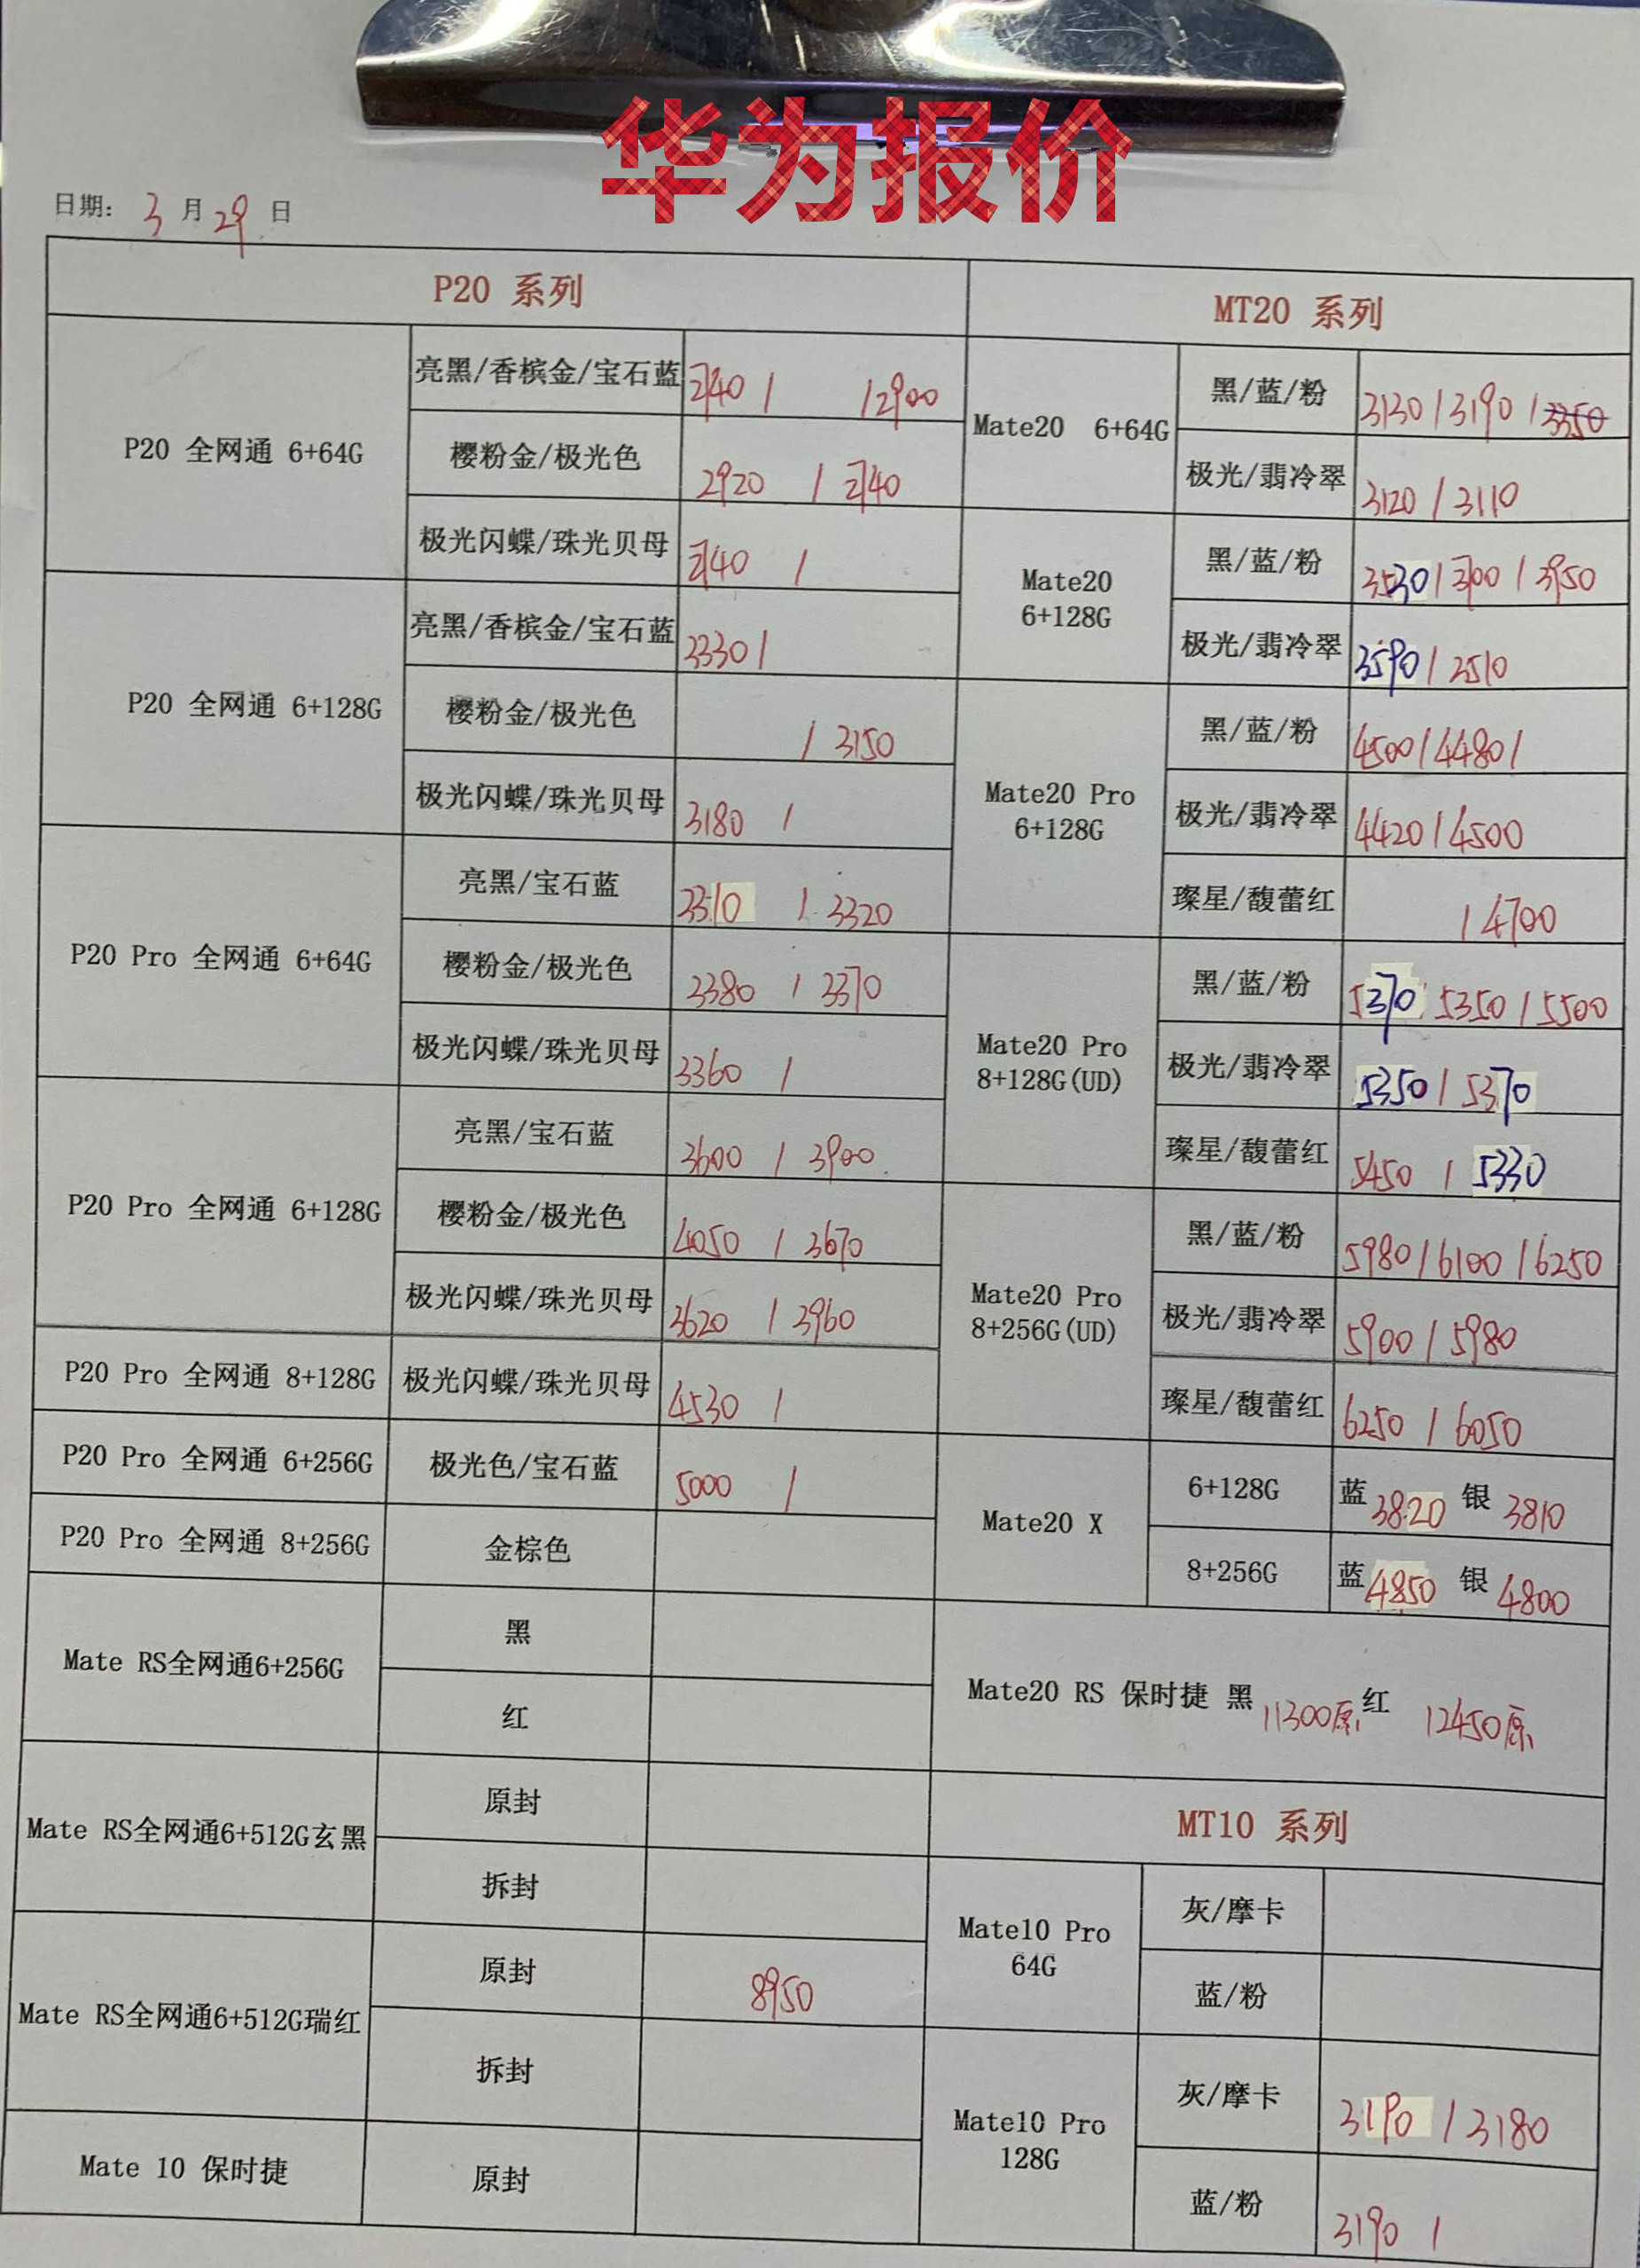 华为报价
日期: 3 月 29 日
P20 系列
P20 全网通 6+64G
亮黑/香槟金/宝石蓝 2740 / /2900
樱粉金/极光色 2920 / 2740
极光闪蝶/珠光贝母 2740 /
P20 全网通 6+128G
亮黑/香槟金/宝石蓝 3330 /
樱粉金/极光色 / 3150
极光闪蝶/珠光贝母 3180 /
P20 Pro 全网通 6+64G
亮黑/宝石蓝 3310 / 3320
樱粉金/极光色 3380 / 3370
极光闪蝶/珠光贝母 3360 /
P20 Pro 全网通 6+128G
亮黑/宝石蓝 3600 / 3900
樱粉金/极光色 4050 / 3670
极光闪蝶/珠光贝母 3620 / 3960
P20 Pro 全网通 8+128G 极光闪蝶/珠光贝母 4530 /
P20 Pro 全网通 6+256G 极光色/宝石蓝 5000 /
P20 Pro 全网通 8+256G 金棕色
Mate RS全网通6+256G
黑
红
Mate RS全网通6+512G玄黑
原封
拆封
Mate RS全网通6+512G瑞红
原封 8950
拆封
Mate 10 保时捷 原封
MT20 系列
Mate20 6+64G
黑/蓝/粉 3130 / 3190 / 3350
极光/翡冷翠 3120 / 3110
Mate20
6+128G
黑/蓝/粉 3530 / 3700 / 3950
极光/翡冷翠 3590 / 3510
Mate20 Pro
6+128G
黑/蓝/粉 4500 / 4480 /
极光/翡冷翠 4420 / 4500
璨星/馥蕾红 / 4700
Mate20 Pro
8+128G(UD)
黑/蓝/粉 5370 5350 / 5500
极光/翡冷翠 5350 / 5370
璨星/馥蕾红 5450 / 5330
Mate20 Pro
8+256G(UD)
黑/蓝/粉 5980 / 6100 / 6250
极光/翡冷翠 5900 / 5980
璨星/馥蕾红 6250 / 6050
Mate20 X
6+128G 蓝 3820 银 3810
8+256G 蓝 4850 银 4800
Mate20 RS 保时捷 黑 11300原 红 12450原
MT10 系列
Mate10 Pro
64G
灰/摩卡
蓝/粉
Mate10 Pro
128G
灰/摩卡 3190 / 3180
蓝/粉 3190 /